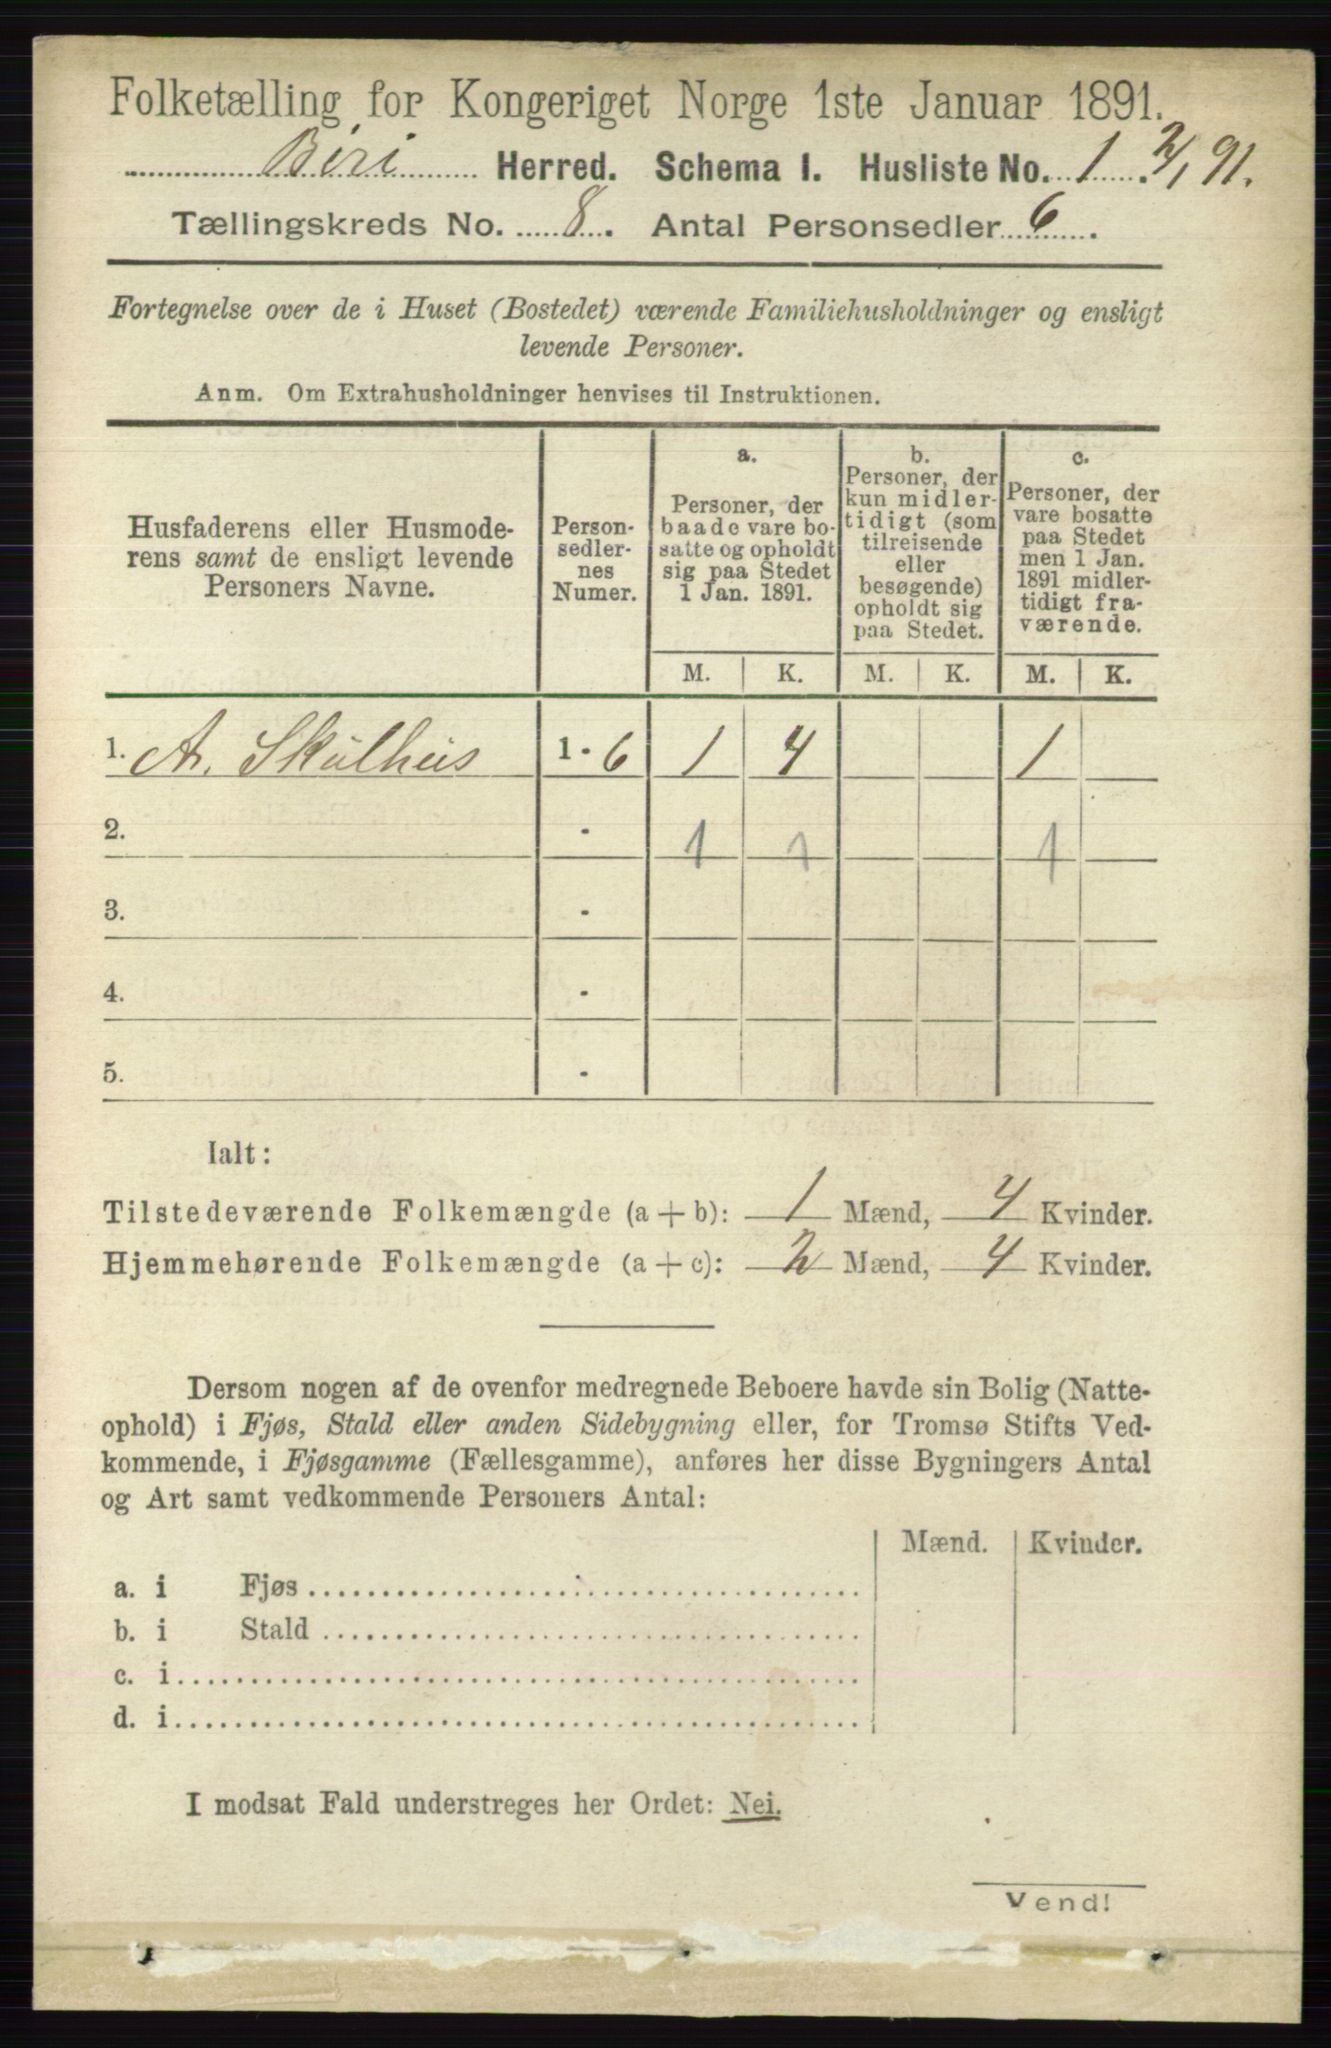 Folketælling for Kongeriget Norge 1ste Januar 1891.
Biri Herred. Schema I. Husliste No. 1. 2/1 91.
Tællingskreds No. 8. Antal Personsedler 6.
Fortegnelse over de i Huset (Bostedet) værende Familiehusholdninger og ensligt
levende Personer.
Anm. Om Extrahusholdninger henvises til Instruktionen.
Husfaderens eller Husmode-
rens samt de ensligt levende
Personers Navne.
Person-
sedler-
nes
Numer.
a.
Personer, der
baade vare bo-
satte og opholdt
sig paa Stedet
1 Jan. 1891.
b.
Personer, der
kun midler-
tidigt (som
tilreisende
eller
besøgende)
opholdt sig
paa Stedet.
c.
Personer, der
vare bosatte
paa Stedet
men 1 Jan.
1891 midler-
tidigt fra-
værende.
M. K. M. K. M. K.
1. A. Skulhus 1 - 6 1 4 1
2. - 1 1 1
3. -
4. -
5. -
Ialt:
Tilstedeværende Folkemængde (a + b): 1 Mænd, 4 Kvinder.
Hjemmehørende Folkemængde (a + c): 2 Mænd, 4 Kvinder.
Dersom nogen af de ovenfor medregnede Beboere havde sin Bolig (Natte-
ophold) i Fjøs, Stald eller anden Sidebygning eller, for Tromsø Stifts Ved-
kommende, i Fjøsgamme (Fællesgamme), anføres her disse Bygningers Antal
og Art samt vedkommende Personers Antal:
Mænd. Kvinder.
a. i Fjøs
b. i Stald
c. i
d. i
I modsat Fald understreges her Ordet: Nei.
Vend!